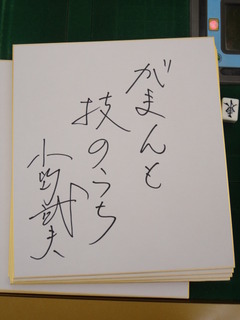 がまんも
技のうち
小島武夫